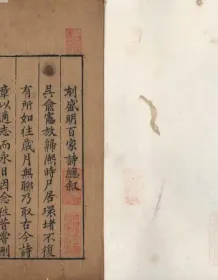 刻盛明百家詩總敘
吳俞憲放歸歸時戶居環堵不復
有所如往歲月無聊乃取古今詩
章以適志而永日因念往昔嘗刪